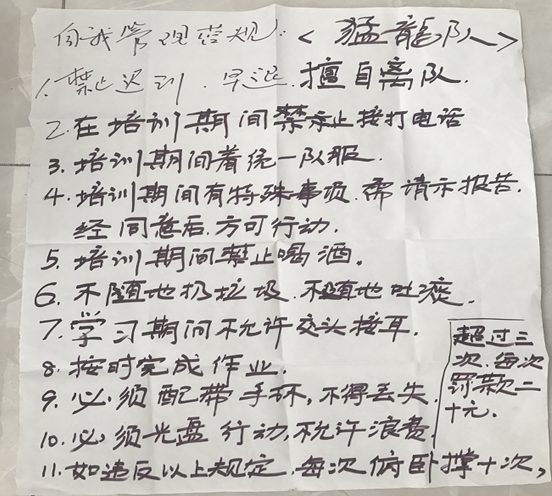 自我管理营规:<猛龍队>
1.禁止迟到.早退.擅自离队.
2.在培训期间禁止接打电话
3.培训期间着统一队服.
4.培训期间有特殊事项.需请示报告.
经同意后.方可行动.
5.培训期间禁止喝酒。
6.不随地扔垃圾.不随地吐痰.
7.学习期间不允许交头接耳.
8.按时完成作业.
9.必须配带手环,不得丢失.
10.必须光盘行动,不允许浪费.
11.如违反以上规定.每次俯卧撑十次,
超过三
次.每次
罚款二
十元.